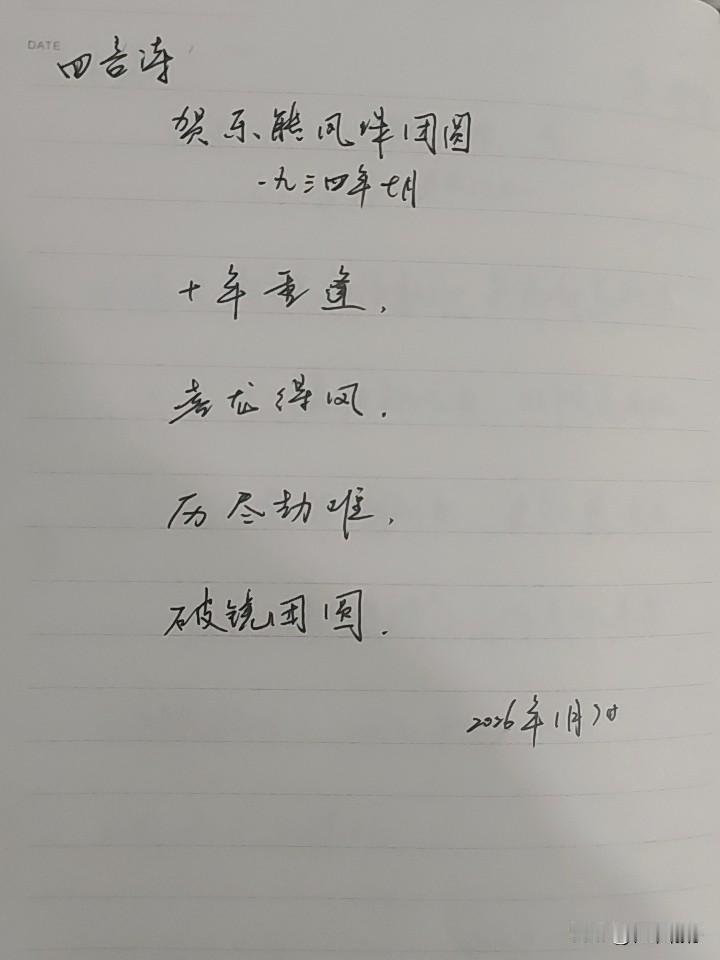 DATE
四言诗
贺乐能凤珠团圆
一九三四年七月
十年重逢,
喜龙得凤.
历尽劫难,
破镜团圆.
2026年1月7日